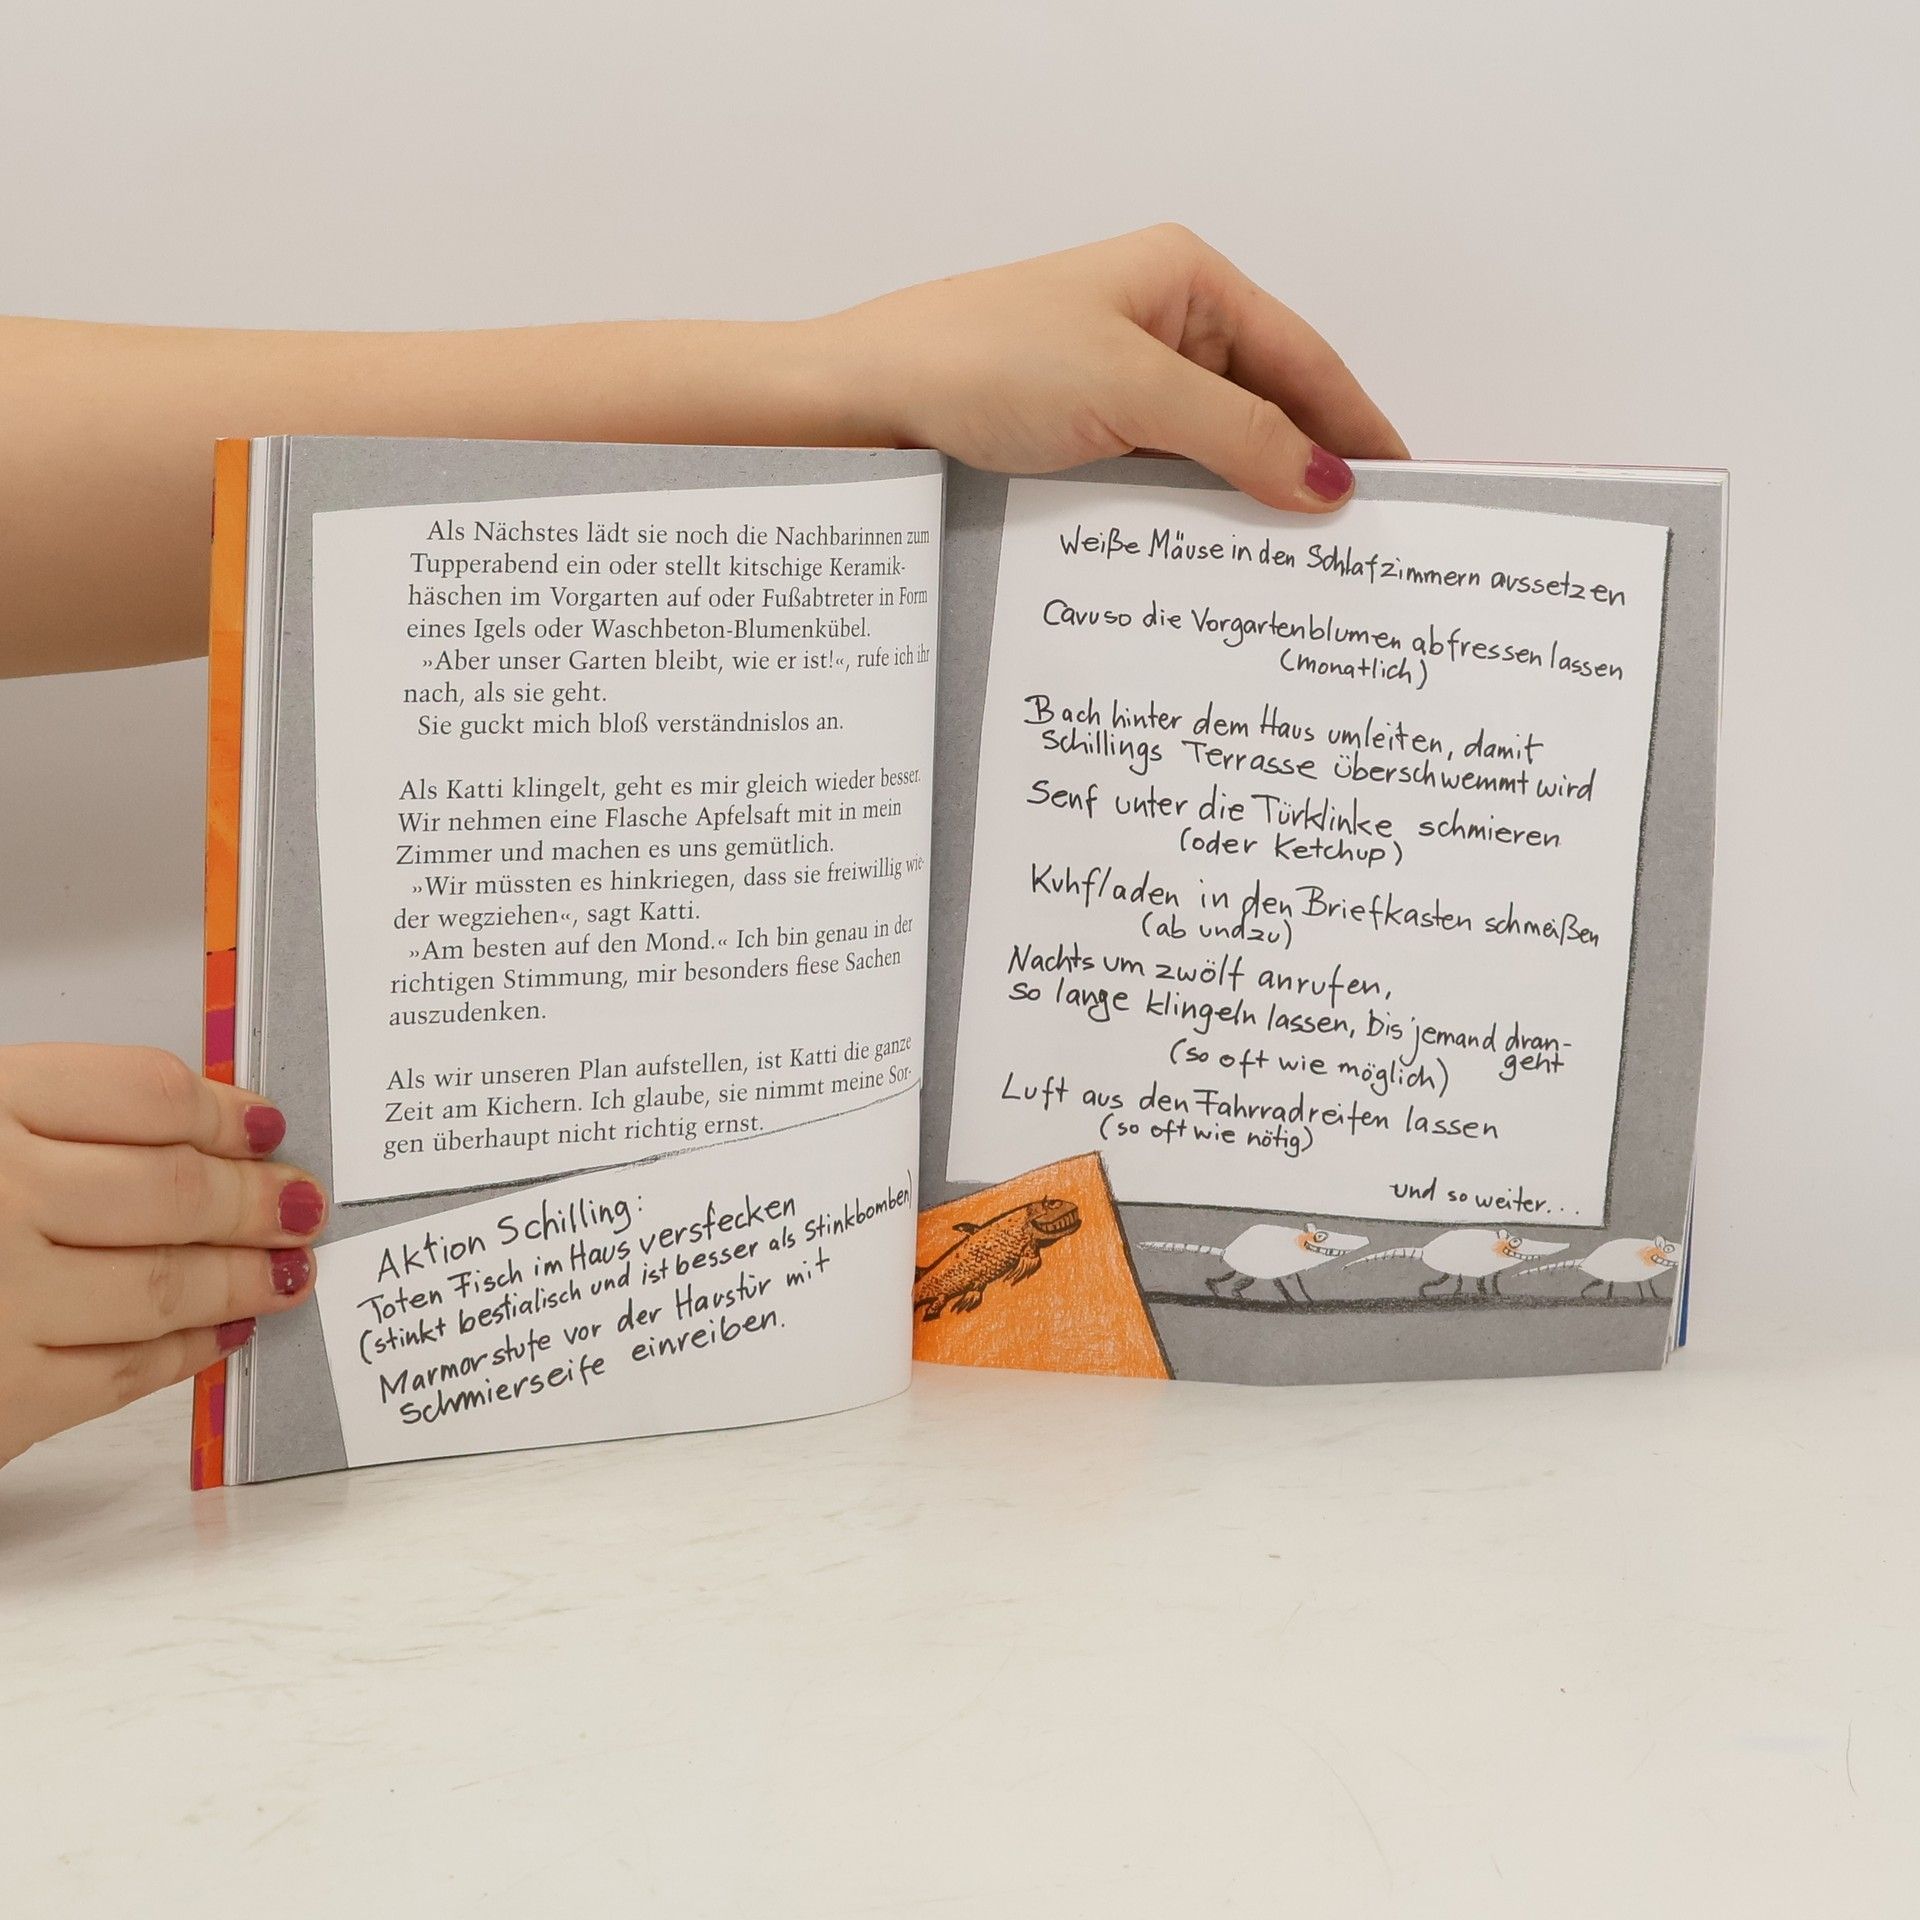 Als Nächstes lädt sie noch die Nachbarinnen zum
Tupperabend ein oder stellt kitschige Keramik-
häschen im Vorgarten auf oder Fußabtreter in Form
eines Igels oder Waschbeton-Blumenkübel.
»Aber unser Garten bleibt, wie er ist!«, rufe ich ihr
nach, als sie geht.
Sie guckt mich bloß verständnislos an.
Als Katti klingelt, geht es mir gleich wieder besser.
Wir nehmen eine Flasche Apfelsaft mit in mein
Zimmer und machen es uns gemütlich.
»Wir müssten es hinkriegen, dass sie freiwillig wie-
der wegziehen«, sagt Katti.
»Am besten auf den Mond.« Ich bin genau in der
richtigen Stimmung, mir besonders fiese Sachen
auszudenken.
Als wir unseren Plan aufstellen, ist Katti die ganze
Zeit am Kichern. Ich glaube, sie nimmt meine Sor-
gen überhaupt nicht richtig ernst.
Aktion Schilling:
Toten Fisch im Haus verstecken
(stinkt bestialisch und ist besser als Stinkbomben)
Marmorstufe vor der Haustür mit
Schmierseife einreiben.
Weiße Mäuse in den Schlafzimmern aussetzen
Caruso die Vorgartenblumen abfressen lassen
(monatlich)
Bach hinter dem Haus umleiten, damit
Schillings Terrasse überschwemmt wird
Senf unter die Türklinke schmieren
(oder Ketchup)
Kuhfladen in den Briefkasten schmeißen
(ab und zu)
Nachts um zwölf anrufen,
so lange klingeln lassen, bis jemand dran-
geht
(so oft wie möglich)
Luft aus den Fahrradreifen lassen
(so oft wie nötig)
und so weiter...